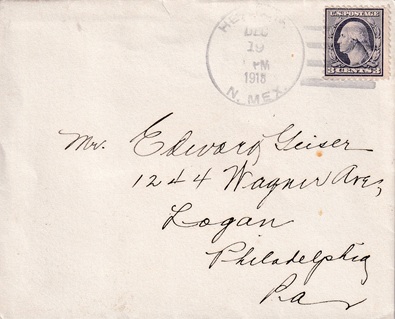 DEC
19
PM
1918
N. MEX.
U.S. POSTAGE
3 CENTS 3
Mr. Edward Geiser
1244 Wagner Ave,
Logan
Philadelphia
Pa